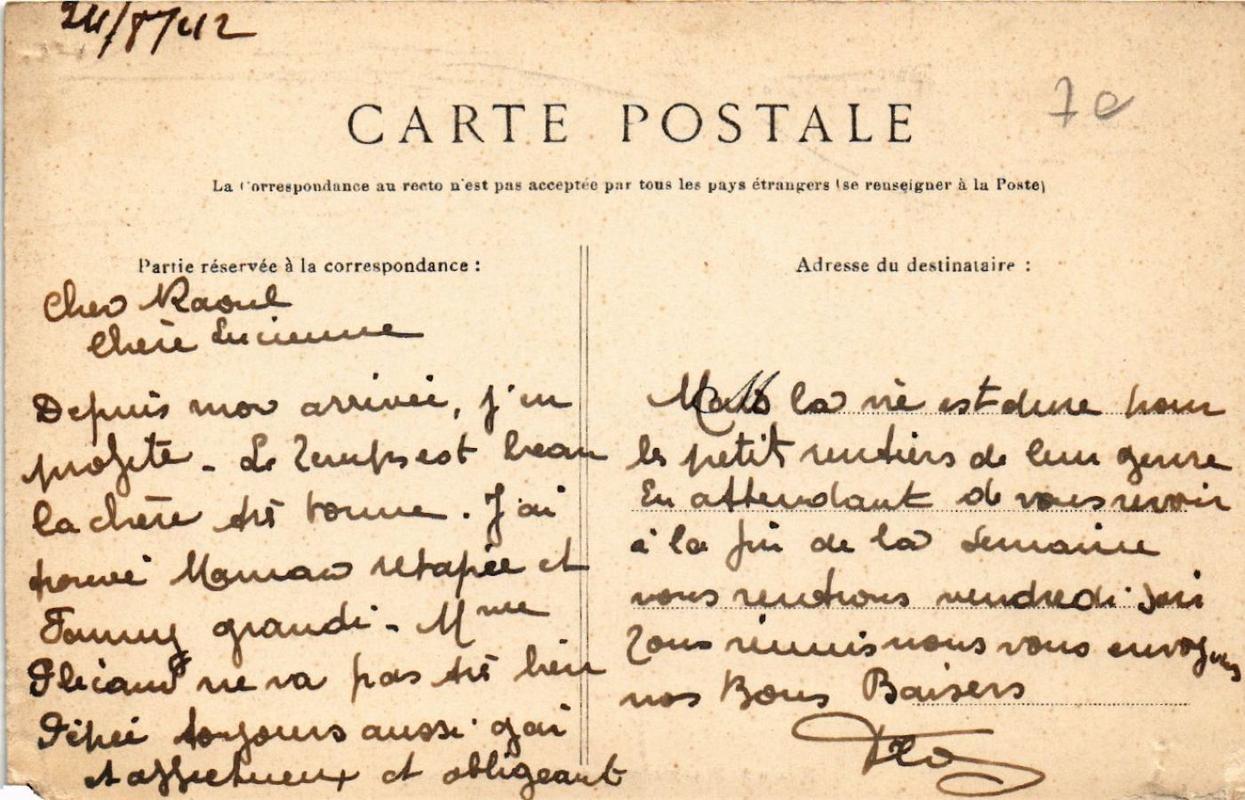 24/8/42
7e
CARTE POSTALE
La Correspondance au recto n'est pas acceptée par tous les pays étrangers (se renseigner à la Poste)
Partie réservée à la correspondance :
Cher Raoul
Chère Lucienne
Depuis mon arrivée, j'en
profite - Le temps est beau
la chère très bonne. J'ai
trouvé Maman retapée et
Fanny grandi - Mme
ne va pas très bien
Pépée toujours aussi gai
et affectueux et obligeant
Adresse du destinataire :
Mais la vie est dure pour
les petit rentiers de leur genre
En attendant de vous revoir
à la fin de la semaine
nous rentrons vendredi soir
Tous réunis nous vous envoyons
nos Bons Baisers